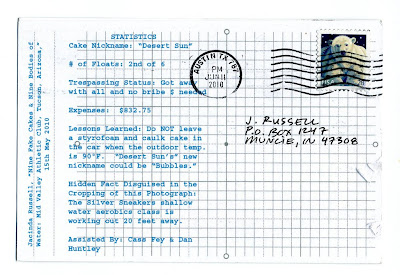 Jacinda Russell, "Nine Fake Cakes & Nine Bodies of
Water: Mid Valley Athletic Club, Tucson, Arizona,"
15th May 2010
STATISTICS
Cake Nickname: "Desert Sun"
# of Floats: 2nd of 6
Trespassing Status: Got away
with all and no bribe $ needed
Expenses: $832.75
Lessons Learned: Do NOT leave
a styrofoam and caulk cake in
the car when the outdoor temp.
is 90°F. "Desert Sun's" new
nickname could be "Bubbles."
Hidden Fact Disguised in the
Cropping of this Photograph:
The Silver Sneakers shallow
water aerobics class is
working out 20 feet away.
Assisted By: Cass Fey & Dan
Huntley
AUSTIN TX 787
PM
JUN 11
2010
J. RUSSELL
P.O. BOX 1247
MUNCIE, IN 47308